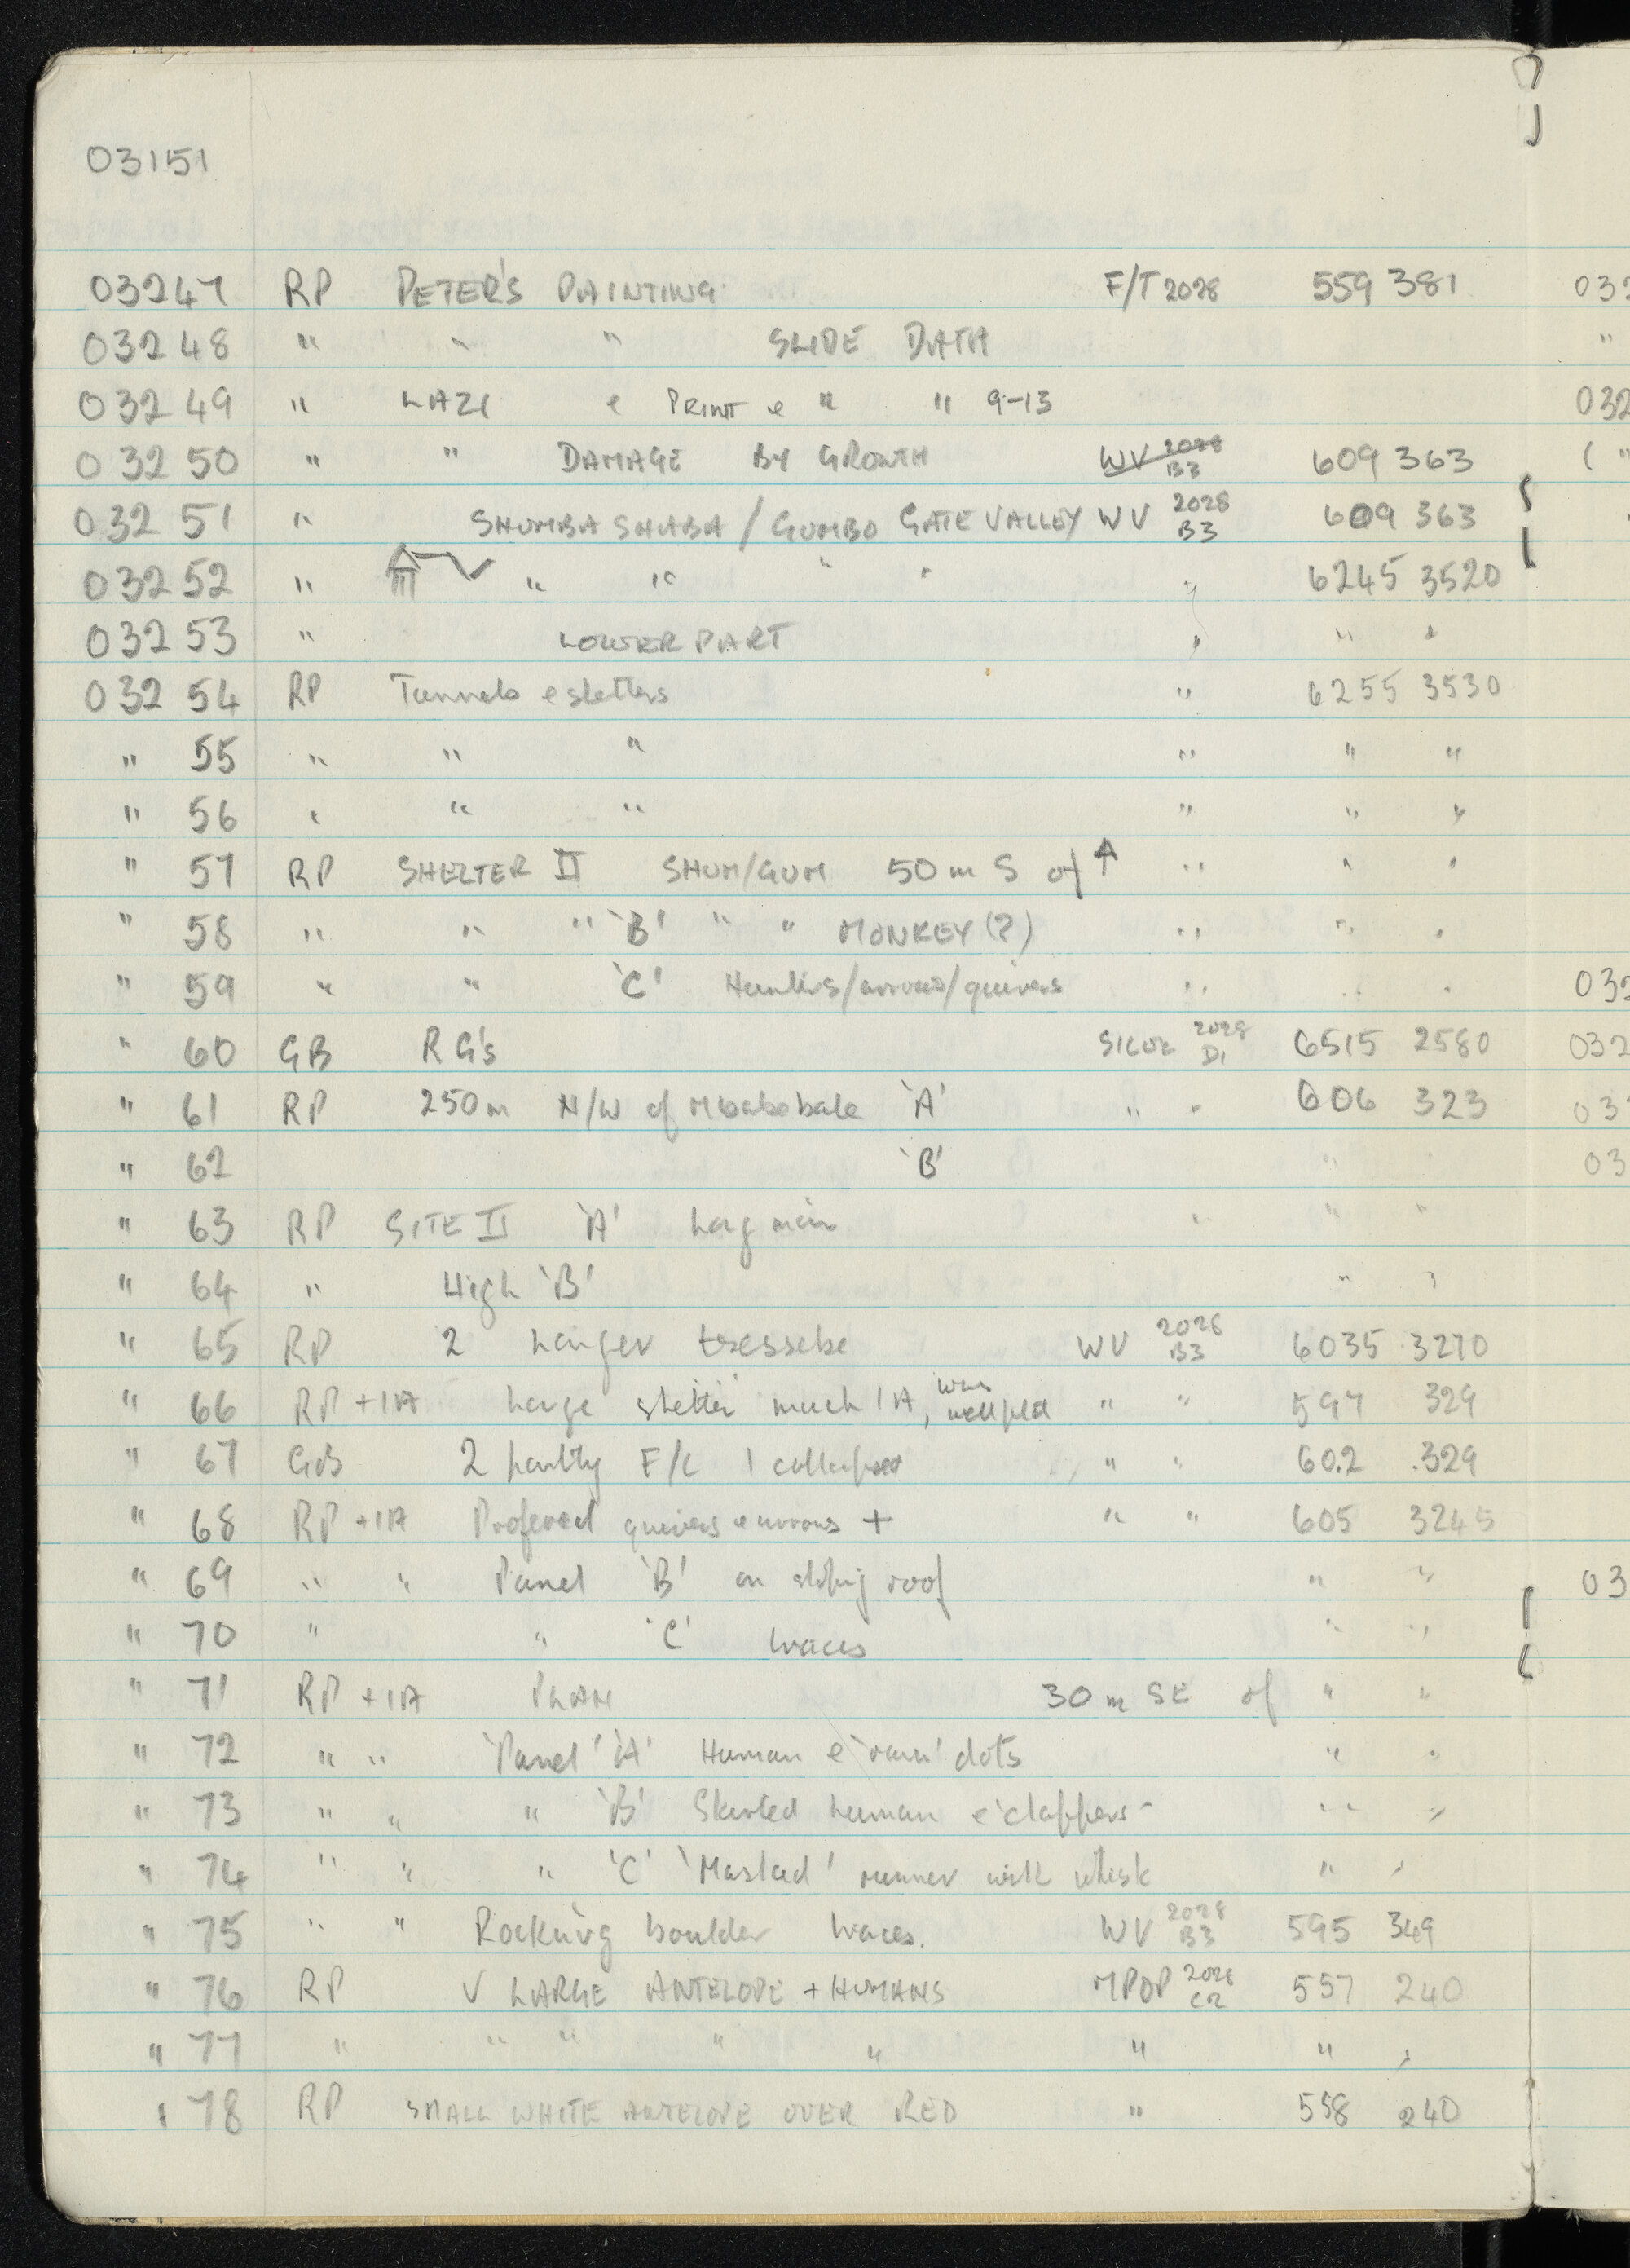 03151
03247 RP PETER'S PAINTING F/T 2028 559 381
03248 " " " SLIDE DATA
03249 " LAZI e PRINT e " " 9-13
03250 " " DAMAGE BY GROWTH WV 2028 B3 609 363
03251 " SHUMBA SHABA / GUMBO GATE VALLEY WV 2028 B3 609 363
03252 " III " " " " " 6245 3520
03253 " LOWER PART " " "
03254 RP Tunnels e shelters " 6255 3530
" 55 " " " " " "
" 56 " " " " " "
" 57 RP SHELTER II SHUM/GUM 50 m S of ↑ " " "
" 58 " " " 'B' " " MONKEY (?) " " "
" 59 " " 'C' Hunters/arrows/quivers " " "
" 60 GB RG's SILOZ 2028 D1 6515 2580
" 61 RP 250m N/W of 'A' " " 606 323
" 62 'B' " "
" 63 RP SITE II 'A' " " "
" 64 " High 'B' " "
" 65 RP 2 larger tsessebe WV 2028 B3 6035 3270
" 66 RP + IA Large shelter much IA, was " " 597 329
" 67 GB 2 F/C 1 collapsed " " 60.2 .329
" 68 RP + IA quivers e arrows + " " 605 3245
" 69 " " Panel 'B' on sloping roof " "
" 70 " " 'C' traces " "
" 71 RP + IA PLAN 30 m SE of " "
" 72 " " 'Panel' 'A' Human e 'rain' dots " "
" 73 " " " 'B' Skirted human e 'clappers' " "
" 74 " " " 'C' 'Masked' runner with whisk " "
" 75 " " Rocking boulder traces. WV 2028 B3 595 349
" 76 RP V LARGE ANTELOPE + HUMANS MPOP 2028 C2 557 240
" 77 " " " " " " " "
" 78 RP SMALL WHITE ANTELOPE OVER RED " 558 240